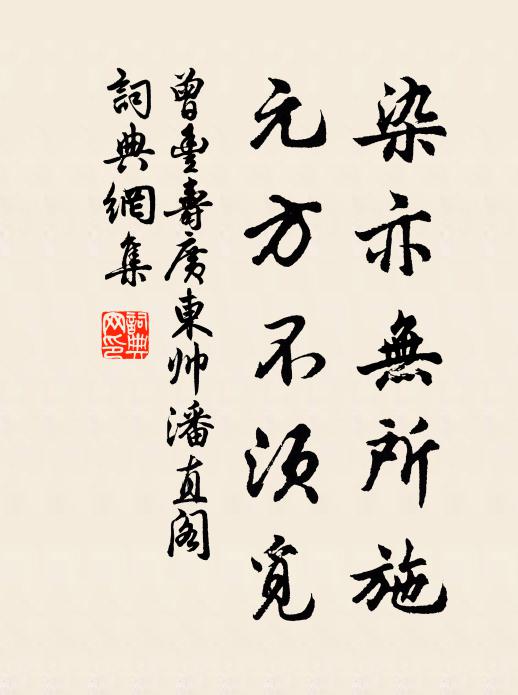 染亦無所施
元方不須覓
曾豐壽廣東帥潘直閣
詞典網集
詞典網印